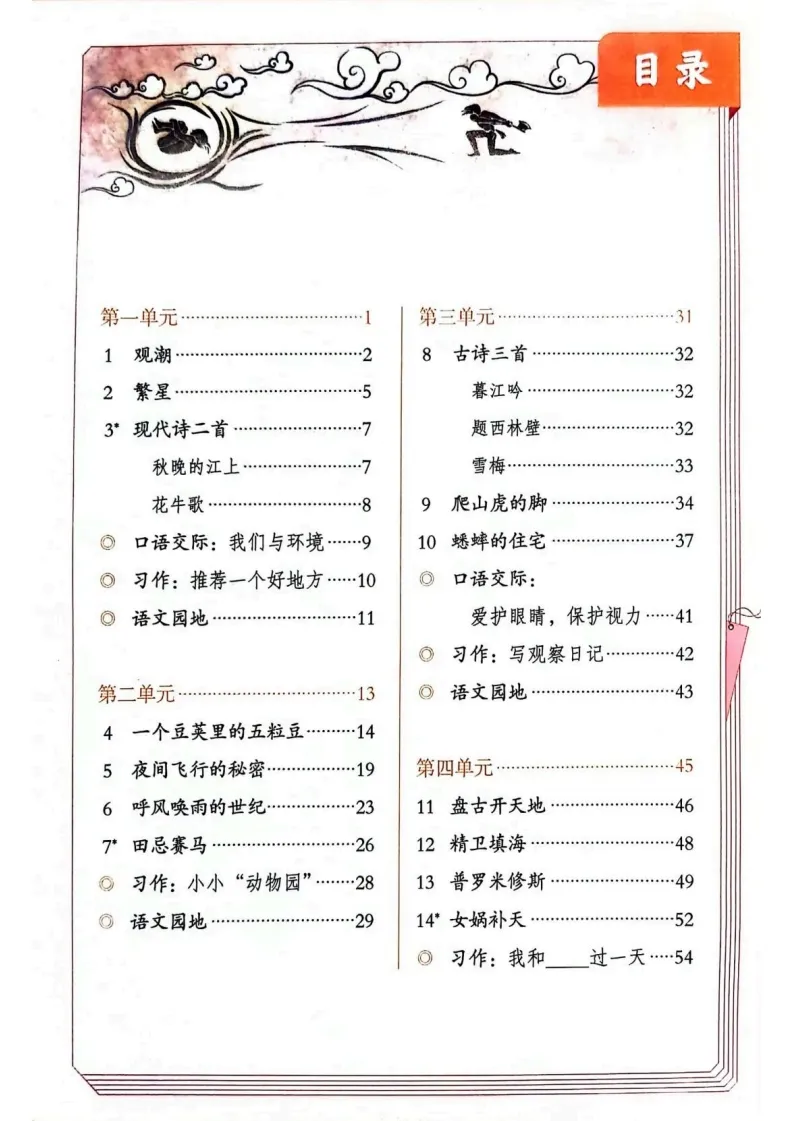 目录
第一单元……1
1 观潮……2
2 繁星……5
3* 现代诗二首……7
秋晚的江上……7
花牛歌……8
◎ 口语交际：我们与环境……9
◎ 习作：推荐一个好地方……10
◎ 语文园地……11
第二单元……13
4 一个豆荚里的五粒豆……14
5 夜间飞行的秘密……19
6 呼风唤雨的世纪……23
7* 田忌赛马……26
◎ 习作：小小“动物园”……28
◎ 语文园地……29
第三单元……31
8 古诗三首……32
暮江吟……32
题西林壁……32
雪梅……33
9 爬山虎的脚……34
10 蟋蟀的住宅……37
◎ 口语交际：
爱护眼睛，保护视力……41
◎ 习作：写观察日记……42
◎ 语文园地……43
第四单元……45
11 盘古开天地……46
12 精卫填海……48
13 普罗米修斯……49
14* 女娲补天……52
◎ 习作：我和____过一天……54